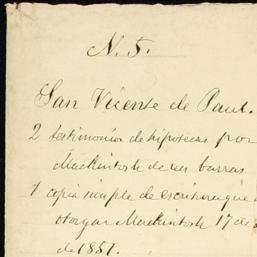 N. 5.
San Vicente de Paul.
2 testimonios de hipotecas por
Mackintosh de us barras
1 copia simple de escritura que
otorgar Mackintosh 17 de
de 1851.